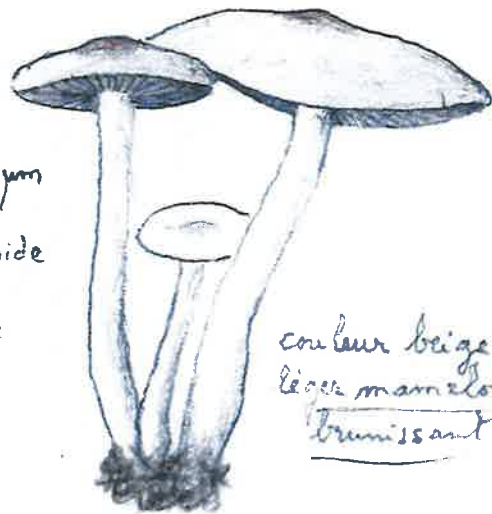 µm
couleur beige
léger mamelo
brunissant